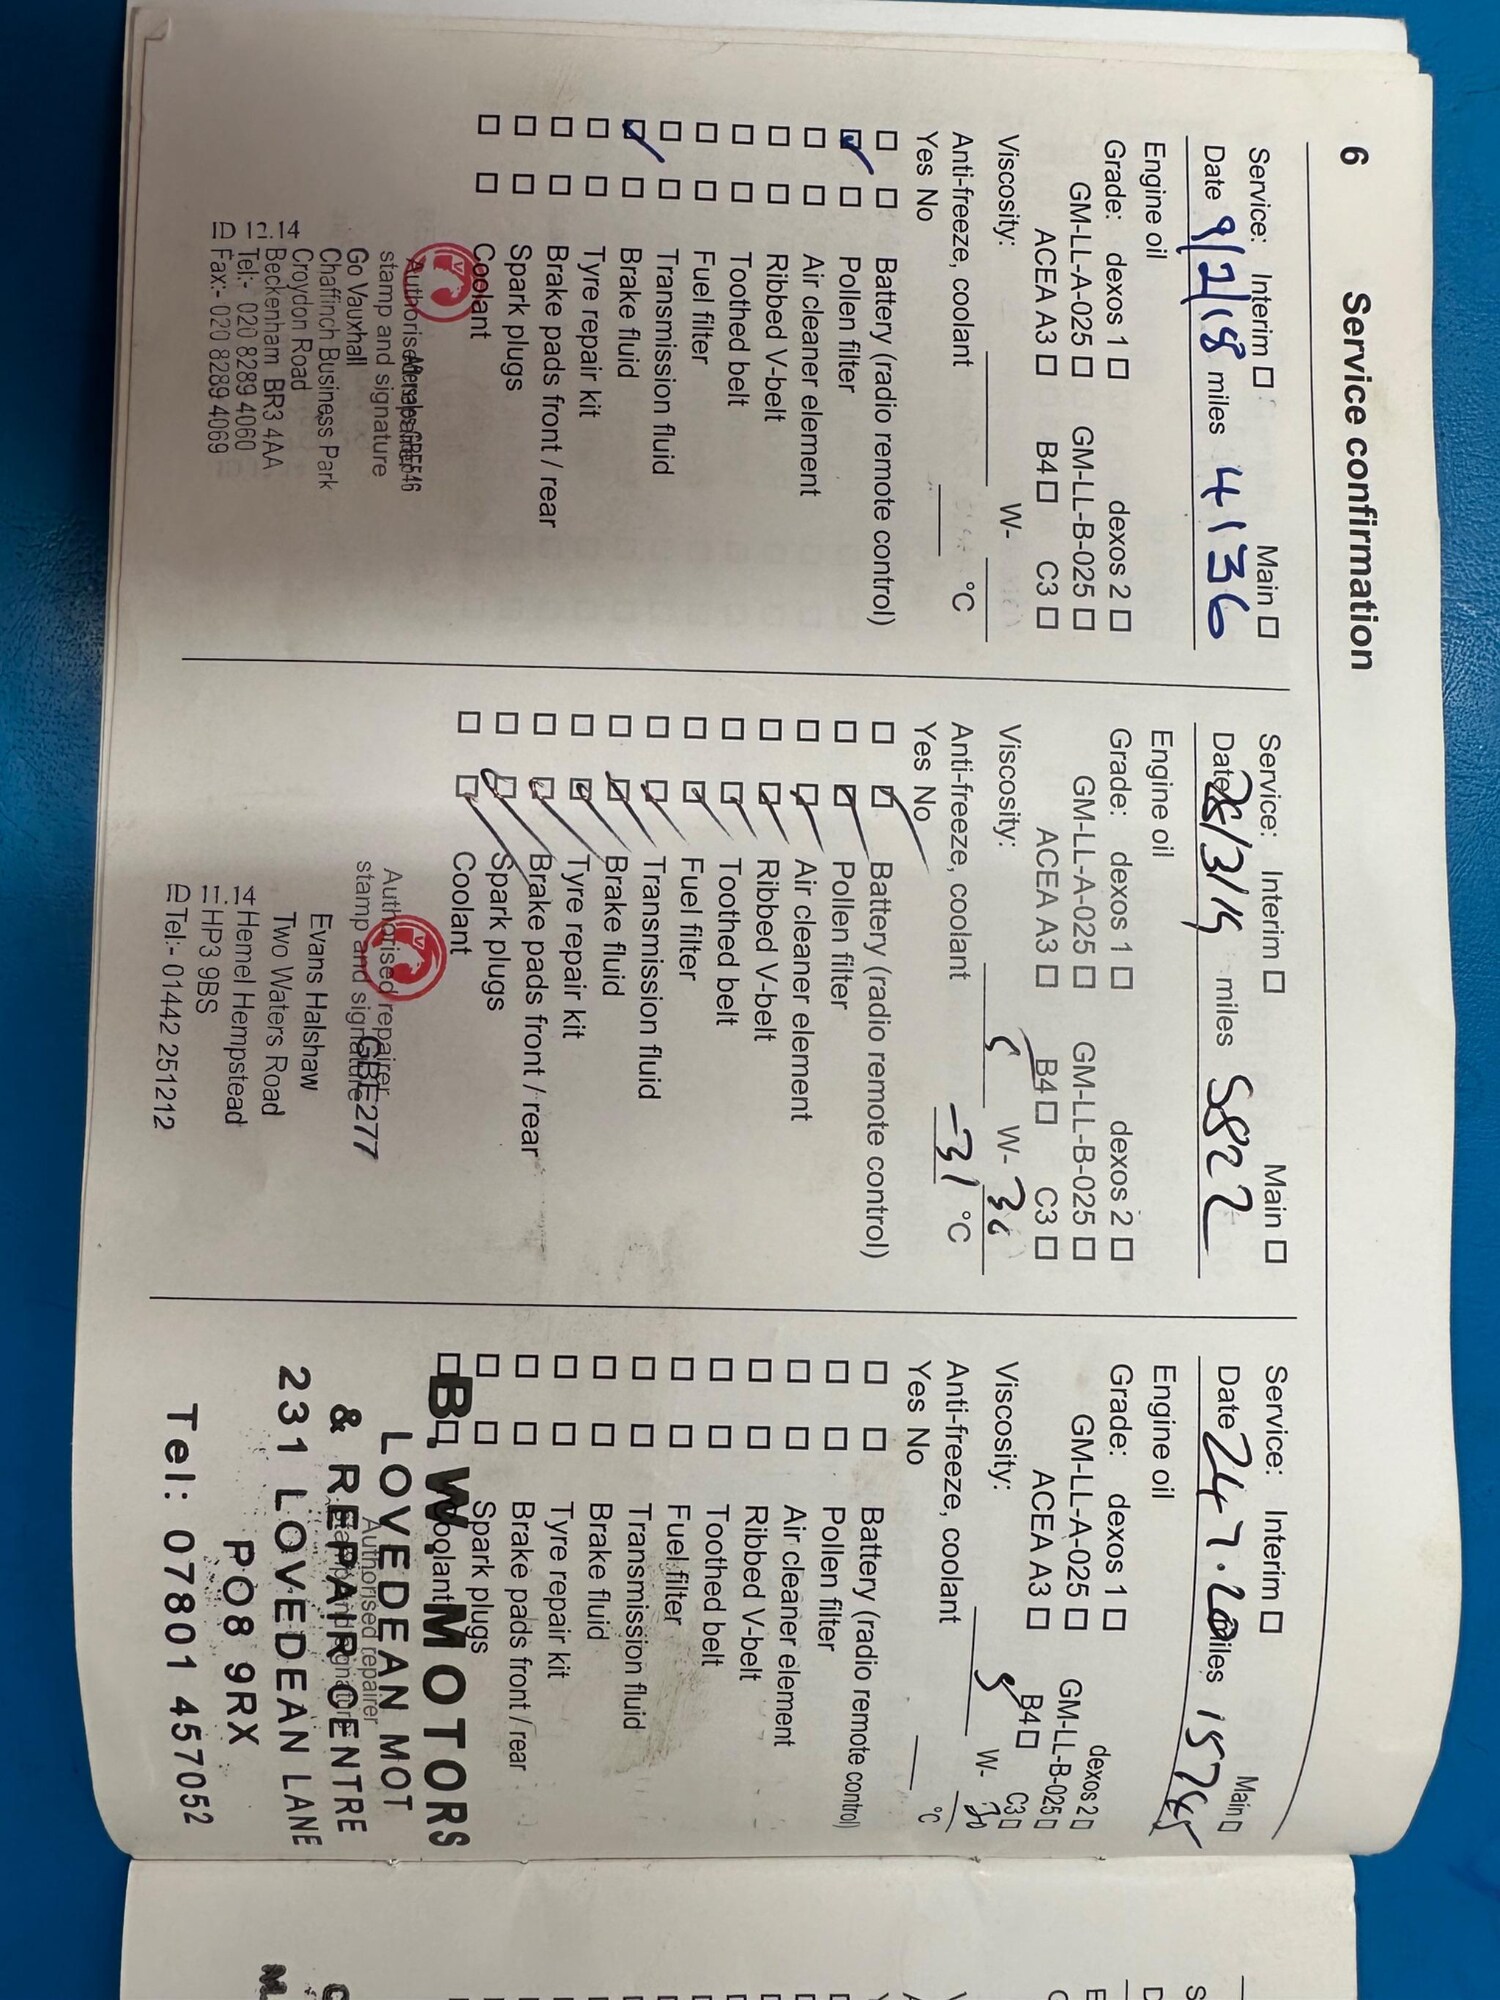 6 Service confirmation
Service: Interim Main
Date 9/2/18 miles 4136
Engine oil
Grade: dexos 1 dexos 2
GM-LL-A-025 GM-LL-B-025
ACEA A3 B4 C3
Viscosity: W-
Anti-freeze, coolant °C
Yes No
Battery (radio remote control)
Pollen filter
Air cleaner element
Ribbed V-belt
Toothed belt
Fuel filter
Transmission fluid
Brake fluid
Tyre repair kit
Brake pads front / rear
Spark plugs
Coolant
Authorised repairer
Aftersales GBF546
stamp and signature
Go Vauxhall
Chaffinch Business Park
Croydon Road
Beckenham BR3 4AA
Tel:- 020 8289 4060
Fax:- 020 8289 4069
ID 12.14
Service: Interim Main
Date /3/19 miles 5822
Engine oil
Grade: dexos 1 dexos 2
GM-LL-A-025 GM-LL-B-025
ACEA A3 B4 C3
Viscosity: 5 W- 30
Anti-freeze, coolant -31 °C
Yes No
Battery (radio remote control)
Pollen filter
Air cleaner element
Ribbed V-belt
Toothed belt
Fuel filter
Transmission fluid
Brake fluid
Tyre repair kit
Brake pads front / rear
Spark plugs
Coolant
Authorised repairer
stamp and signature
GBF277
Evans Halshaw
Two Waters Road
Hemel Hempstead
HP3 9BS
Tel:- 01442 251212
Service: Interim Main
Date 24.7.20 miles 15745
Engine oil
Grade: dexos 1 dexos 2
GM-LL-A-025 GM-LL-B-025
ACEA A3 B4 C3
Viscosity: 5 W- 30
Anti-freeze, coolant °C
Yes No
Battery (radio remote control)
Pollen filter
Air cleaner element
Ribbed V-belt
Toothed belt
Fuel filter
Transmission fluid
Brake fluid
Tyre repair kit
Brake pads front / rear
Spark plugs
Coolant
Authorised repairer
stamp and signature
B. W. MOTORS
LOVEDEAN MOT
& REPAIR CENTRE
231 LOVEDEAN LANE
PO8 9RX
Tel: 07801 457052